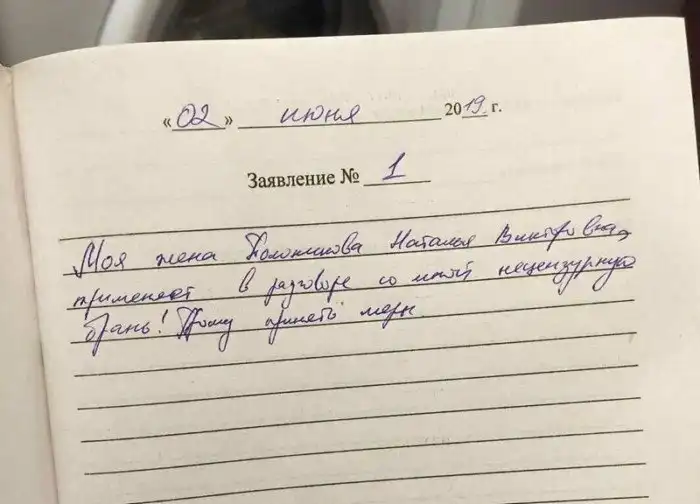 «02» июня 2019 г.
Заявление № 1
Моя жена Наталья Викторовна,
применяет в разговоре со мной нецензурную
брань! Прошу принять меры.